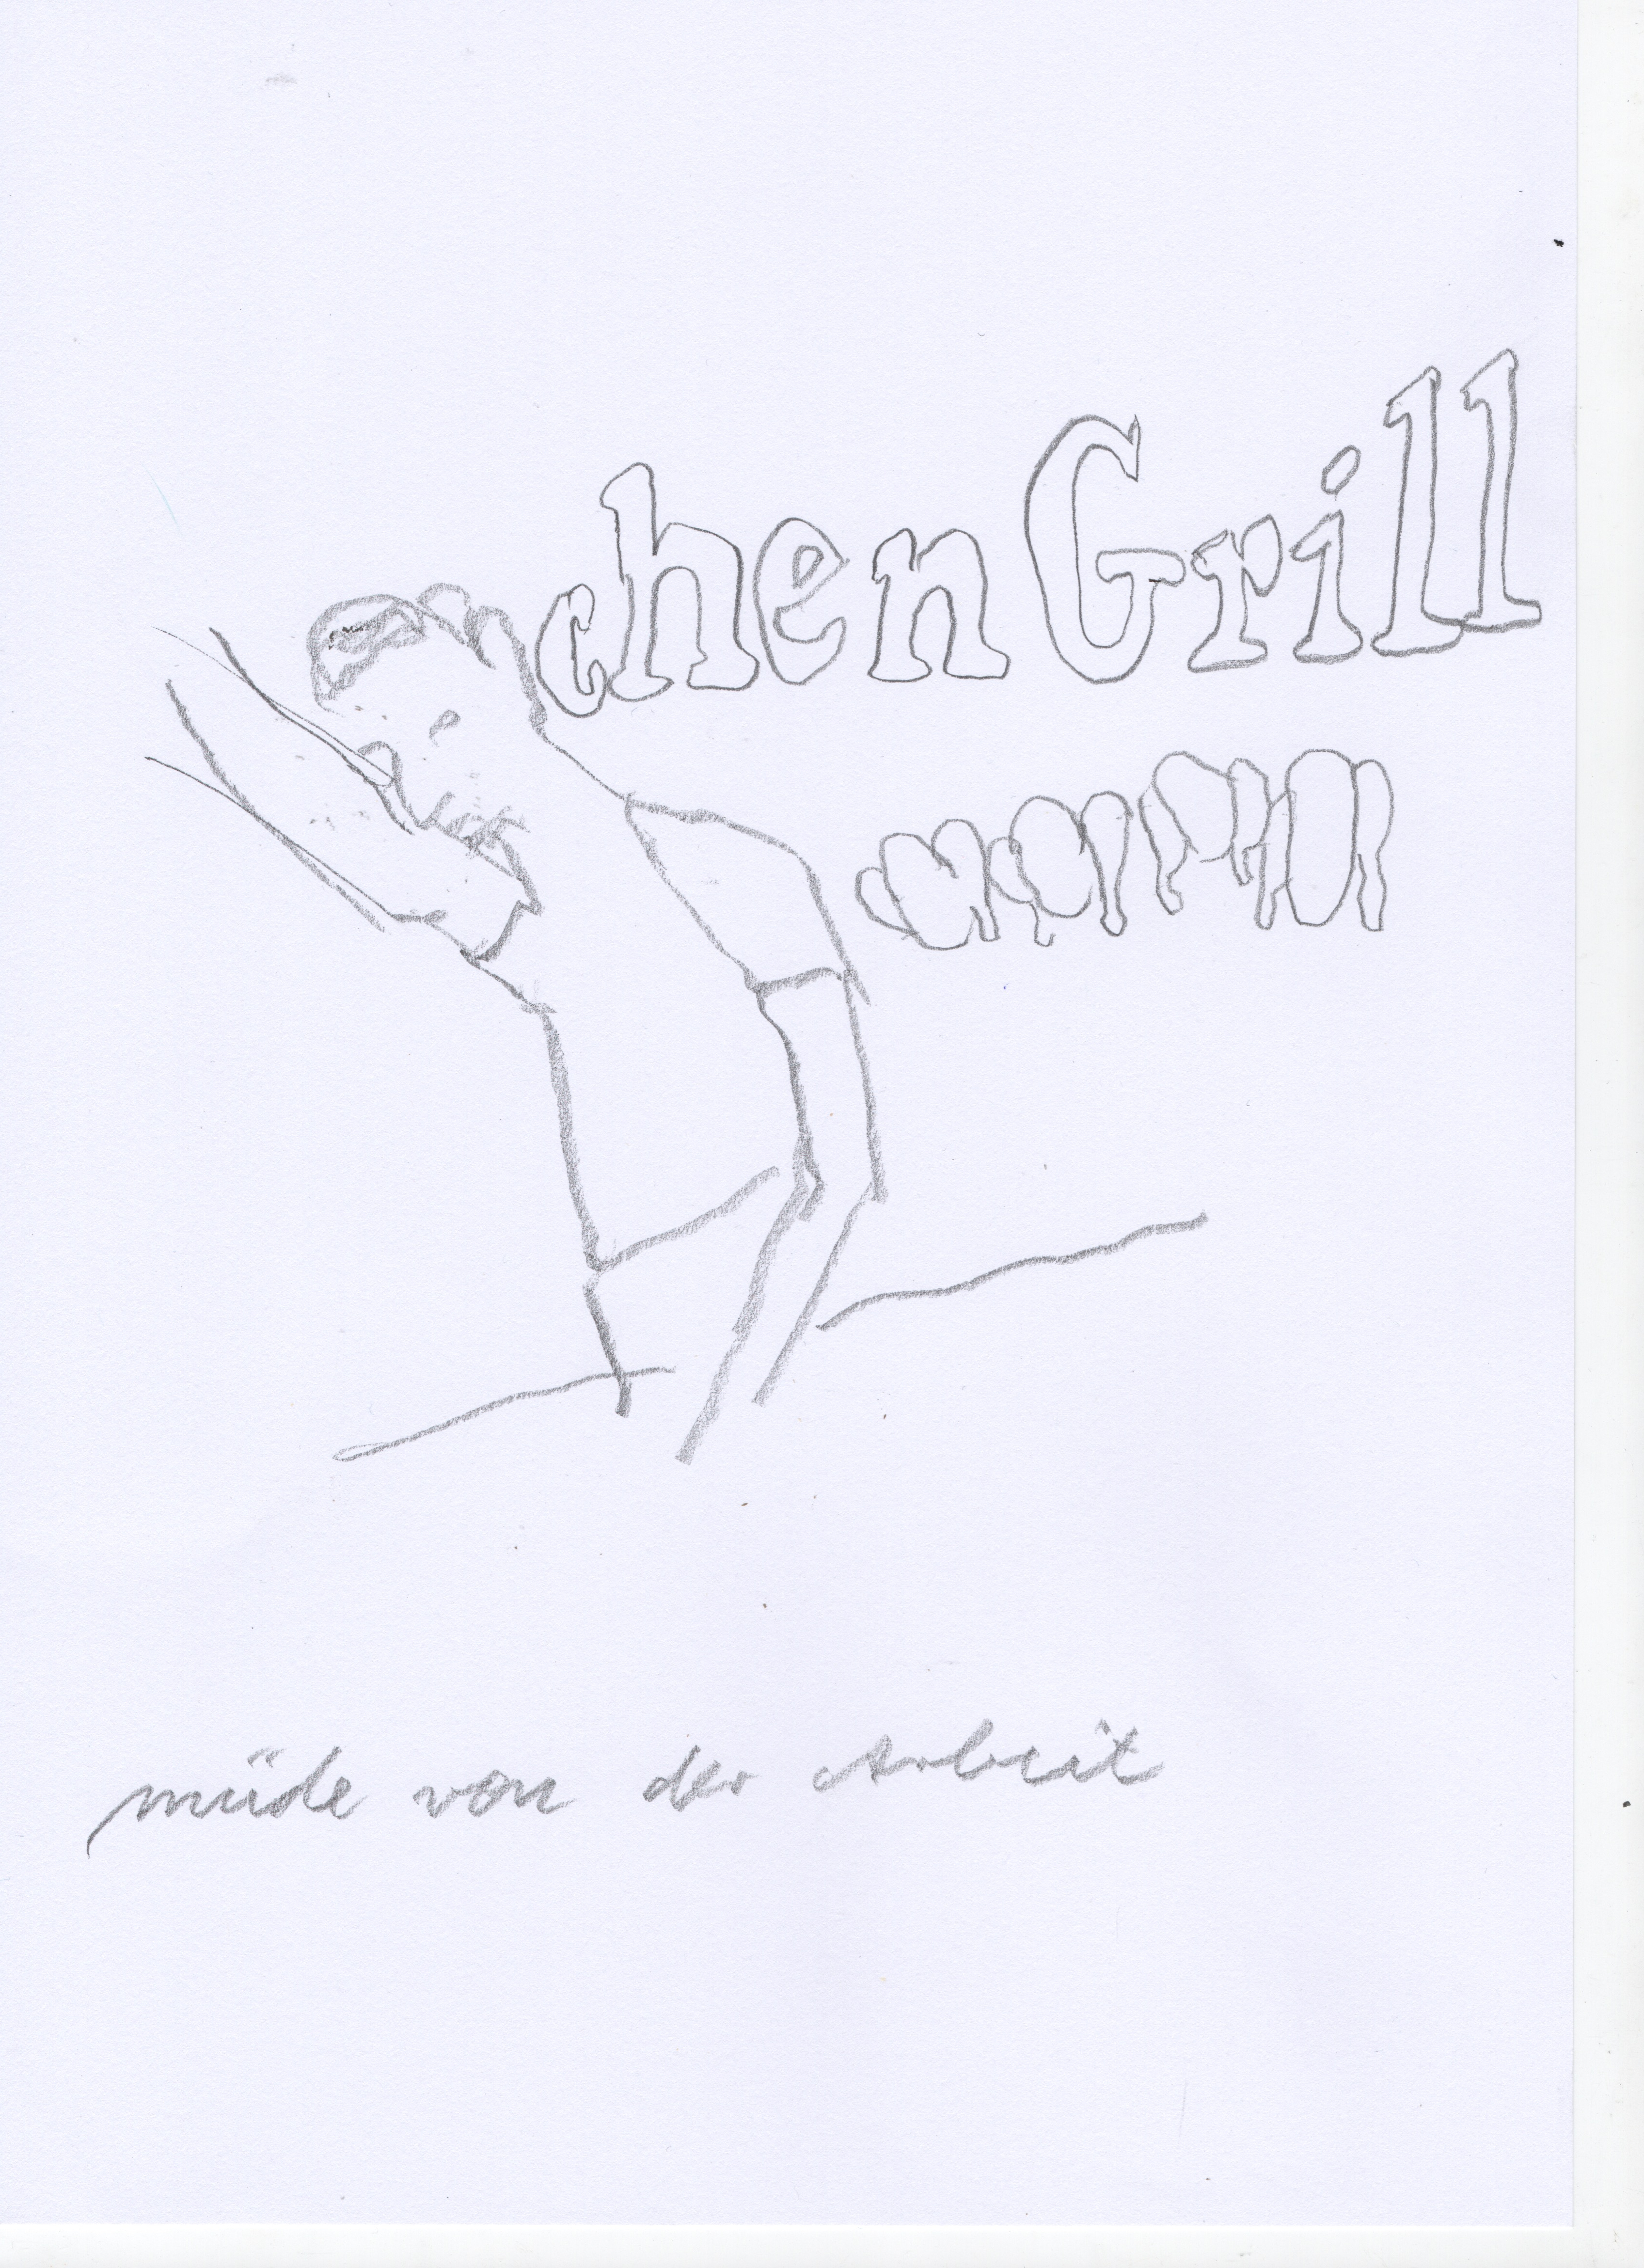 chen Grill
müde von der Arbeit